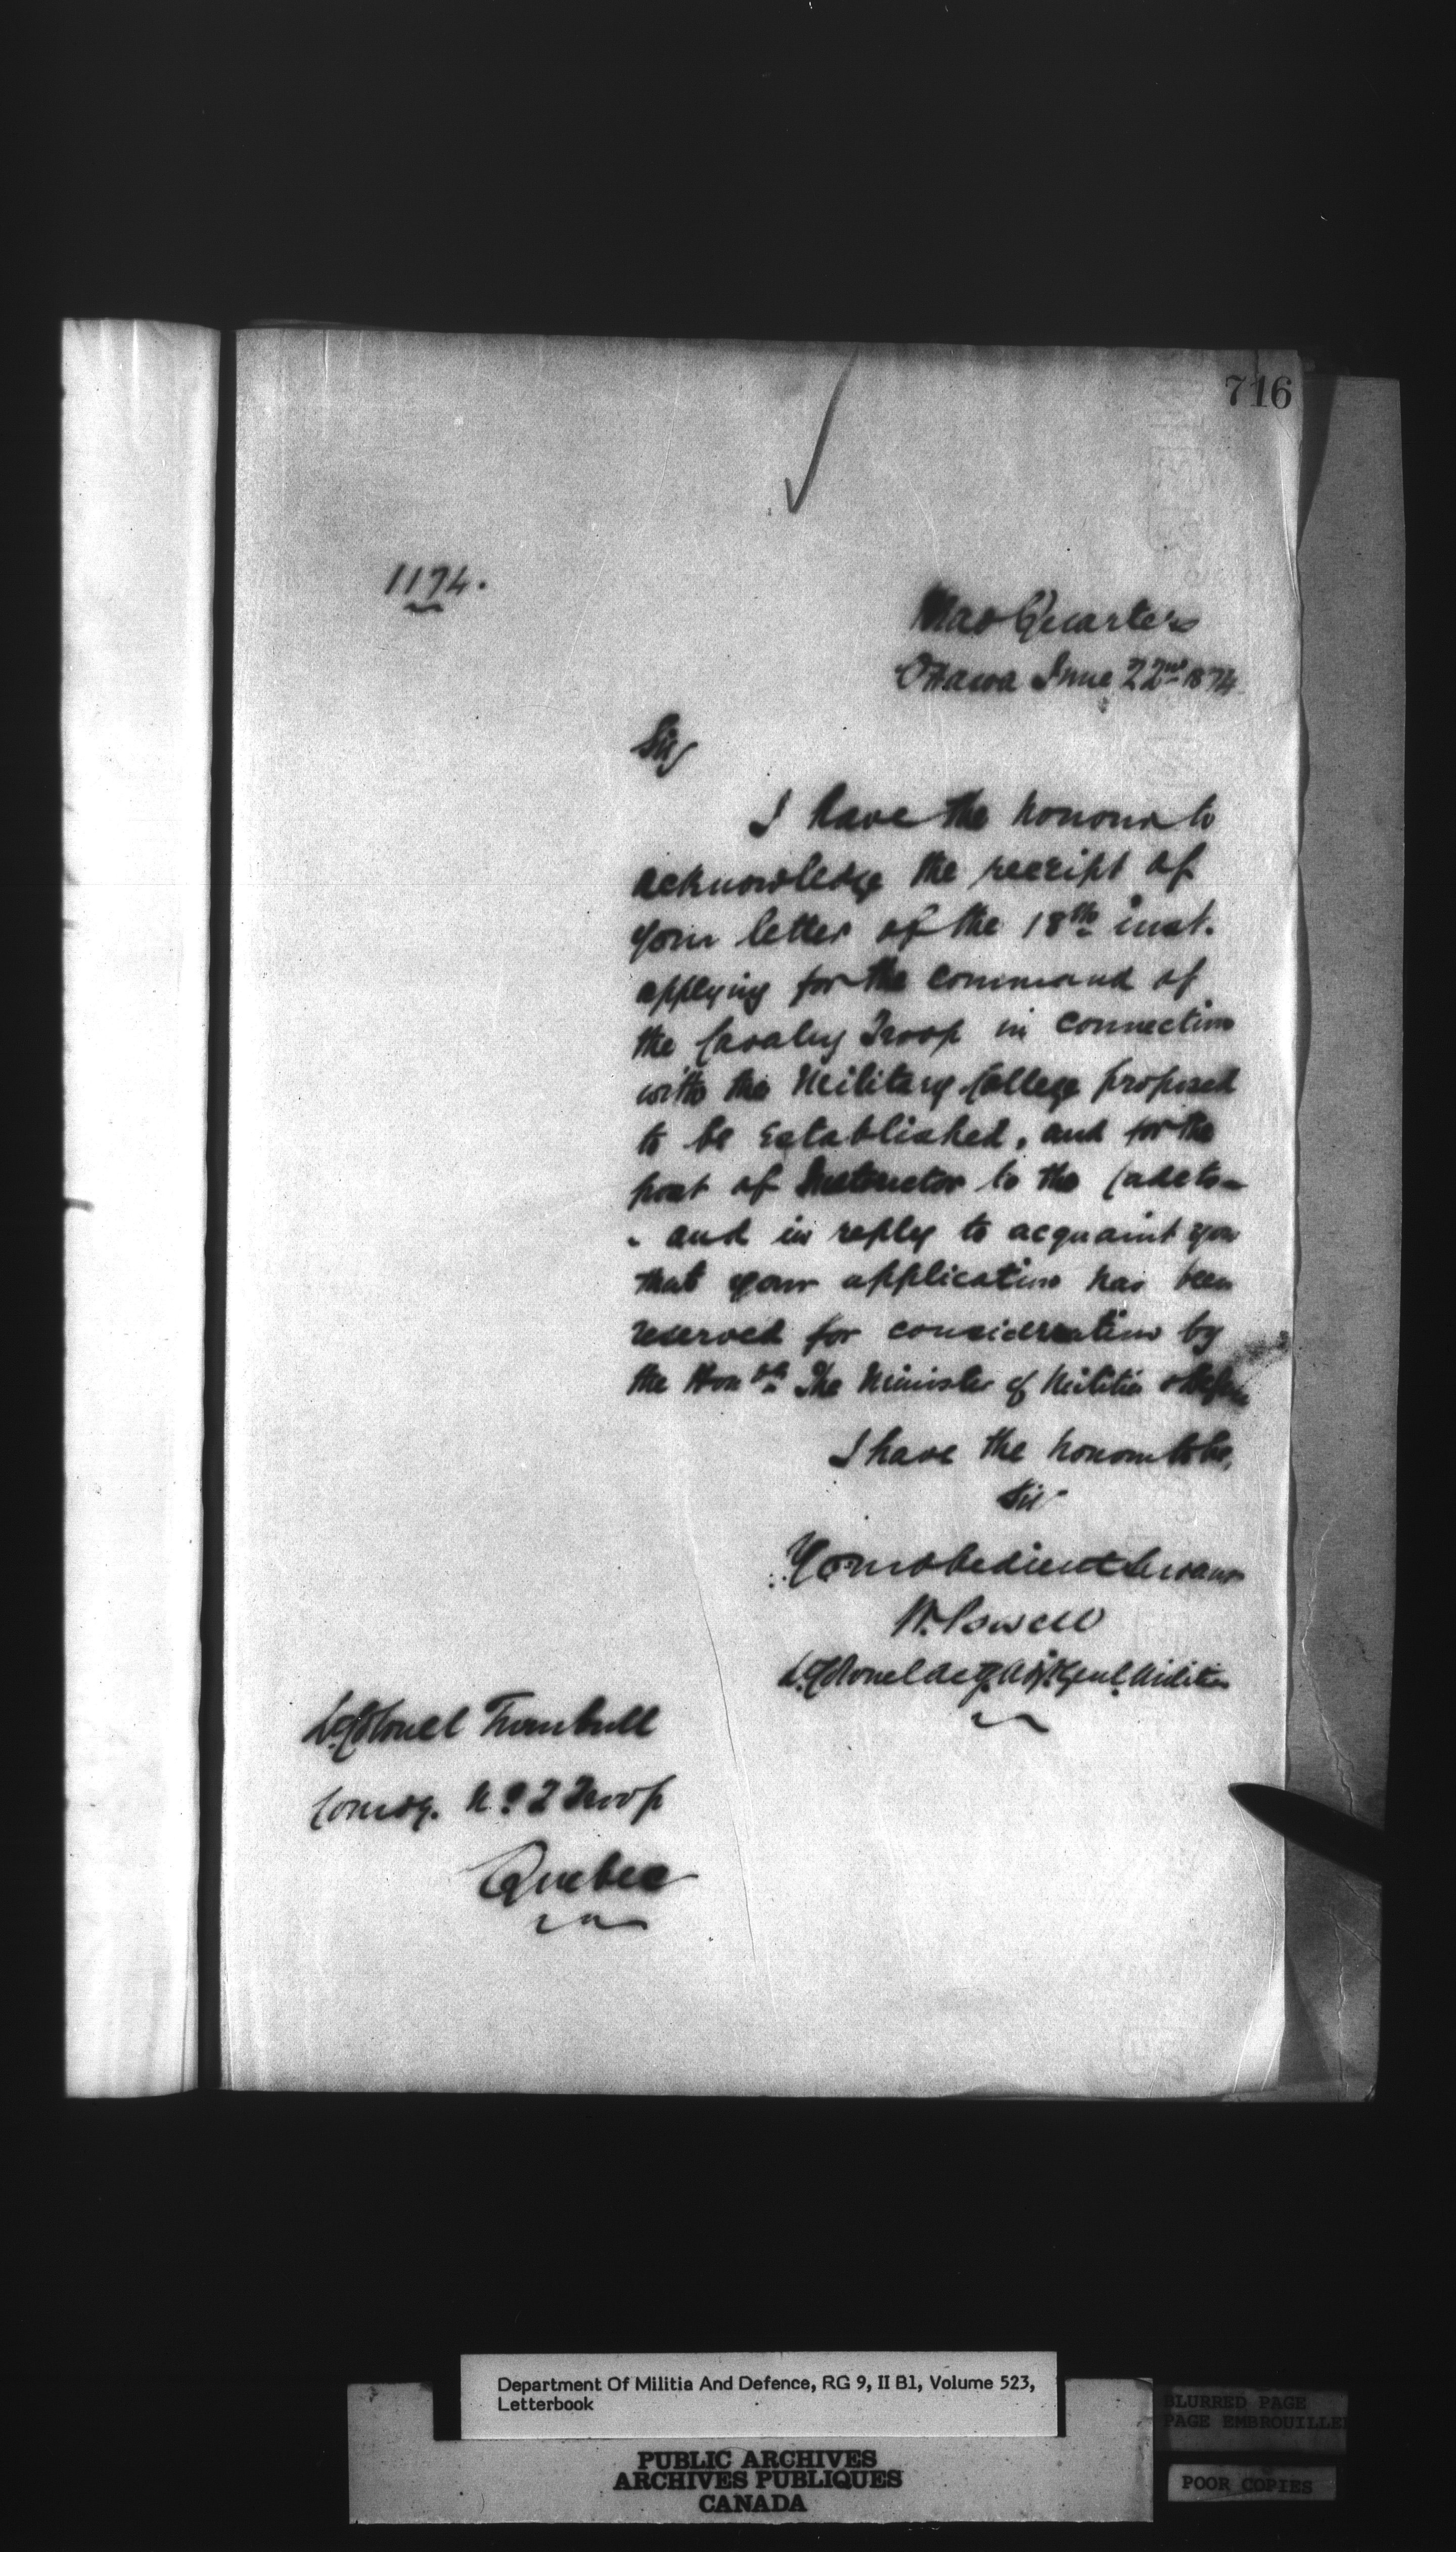 716
1174.
Head Quarters
Ottawa June 22nd 1874
Sir,
I have the honour to
acknowledge the receipt of
your letter of the 18th inst.
applying for the command of
the Cavalry Troop in connection
with the Military College proposed
to be established, and for the
post of Instructor to the Cadets -
- and in reply to acquaint you
that your application has been
reserved for consideration by
the Honble The Minister of Militia & Defence
I have the honour to be,
Sir
Your obedient Servant
W. Powell
Lt. Colonel Actg. Adjt. Genl. Militia
Lt. Colonel Turnbull
Comdg. No. 2 Troop
Quebec
Department Of Militia And Defence, RG 9, II B1, Volume 523,
Letterbook
PUBLIC ARCHIVES
ARCHIVES PUBLIQUES
CANADA
BLURRED PAGE
PAGE EMBROUILLEE
POOR COPIES